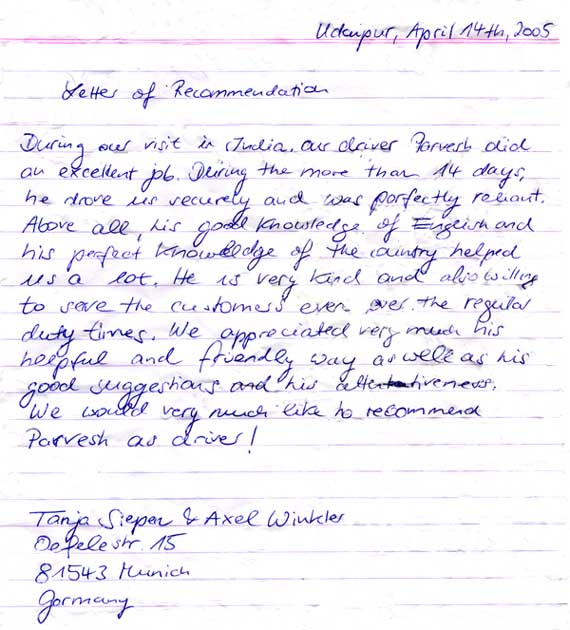 Udaipur, April 14th, 2005
Letter of Recommendation
During our visit in India, our driver Parvesh did
an excellent job. During the more than 14 days,
he drove us securely and was perfectly reliant.
Above all, his good knowledge of English and
his perfect knowledge of the country helped
us a lot. He is very kind and also willing
to serve the customers even over the regular
duty times. We appreciated very much his
helpful and friendly way as well as his
good suggestions and his attentiveness.
We would very much like to recommend
Parvesh as driver!
Tanja Sieper & Axel Winkler
Oefelestr. 15
81543 Munich
Germany